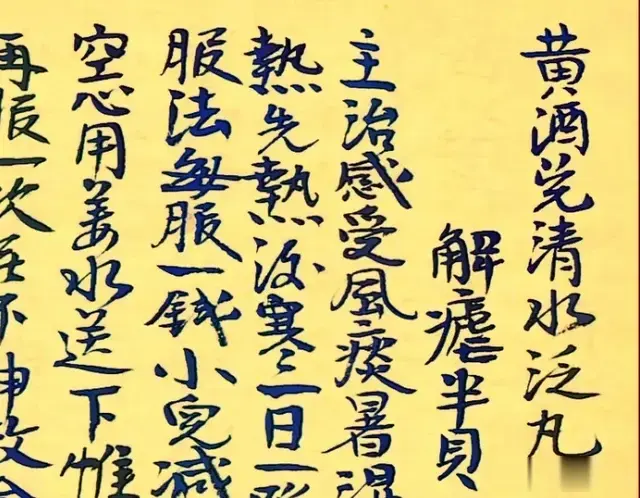 黄酒兑清水泛丸
解瘧半貝
主治感受風痰暑濕
熱先熱後寒三日一
服法每服一錢小兒減
空心用姜水送下惟
再服一次無不神效